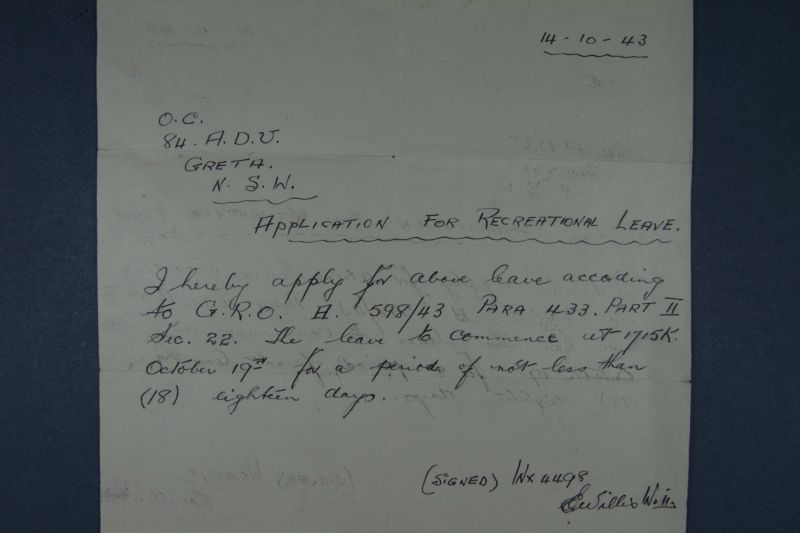 14-10-43
O.C.
84. A.D.U.
GRETA.
N. S. W.
APPLICATION FOR RECREATIONAL LEAVE.
I hereby apply for above leave according
to G.R.O. A. 598/43 PARA 433. PART II
Sec. 22. The leave to commence at 1715K.
October 19TH for a period of not less than
(18) eighteen days.
(SIGNED) 4498
EWillis W.II.